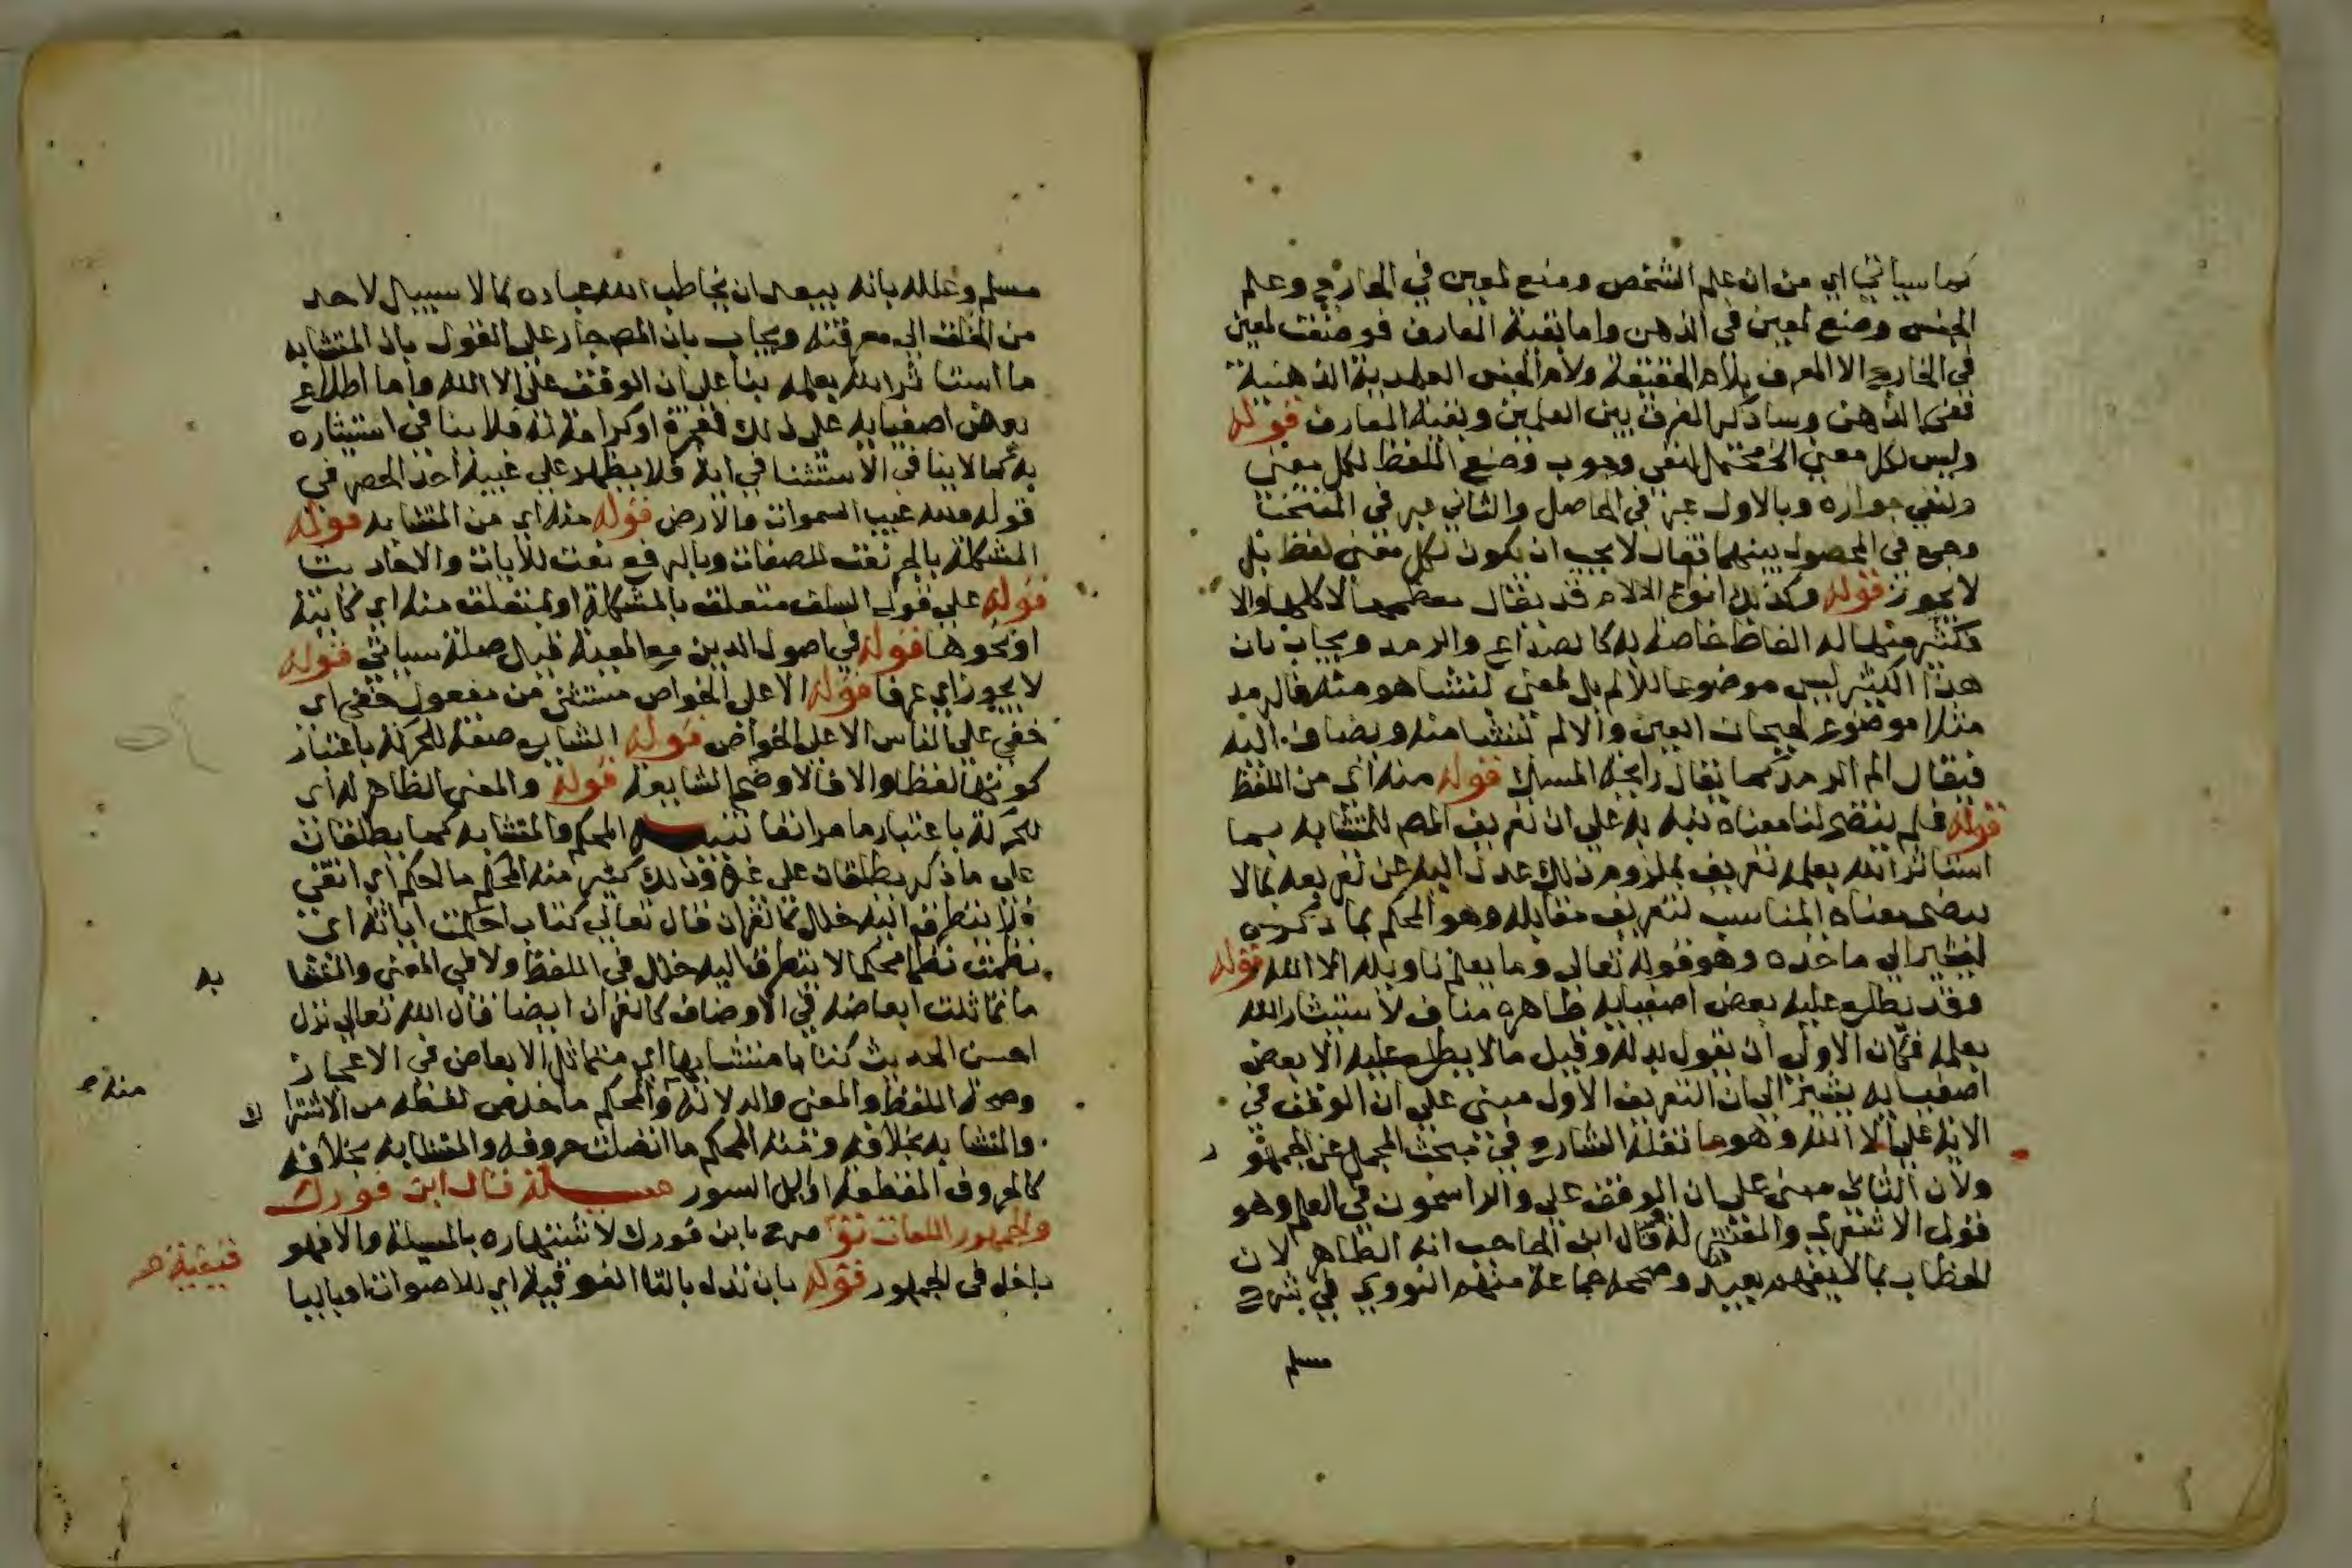 كما سياتي اي من ان علم الشخص وضع لمعين في الخارج وعلم
الجنس وضع لمعين في الذهن واما بقية المعارف فوضعت لمعين
في الخارج الا المعرف بلام الحقيقة ولام الجنس العهدية الذهنية
ففي الذهن وساذكر الفرق بين العلمين وبقية المعارف قوله
وليس لكل معنى الخ محتمل لنفي وجوب وضع اللفظ لكل معنى
ولنفي جوازه وبالاول عبر في الحاصل والثاني عبر في المنتخب
وجمع في المحصول بينهما فقال لا يجب ان يكون لكل معنى لفظ بل
لا يجوز قوله وكذلك انواع الالام قد يقال معظمها لا كلها والا
فكثير منها له الفاظ خاصة به كالصداع والرمد ويجاب بان
هذا الكثير ليس موضوعا للالم بل لمعنى ينشا هو منه فالرمد
مثلا موضوع لهيجان العين والالم ينشا منه ويضاف اليه
فيقال الم الرمد كما يقال رائحة المسك قوله منه اي من اللفظ
قوله فلم يتضح لنا معناه نبه به على ان تعريف المص للمتشابه بما
استاثر الله بعلمه تعريف بملزوم ذلك عدل اليه عن تعريفه بما لا
يتضح معناه المناسب لتعريف مقابله وهو المحكم بما ذكره
ليشير الي ماخذه وهو قوله تعالى وما يعلم تاويله الا الله قوله
وقد يطلع عليه بعض اصفيايه ظاهره مناف لاستيثار الله
بعلمه فكان الاولى ان يقول بدله وقيل ما لا يطلع عليه الا بعض
اصفيايه يشير الى ان التعريف الاول مبني على ان الوقف في
الاية على الا الله وهو ما نقله الشارح في مبحث المجمل عن الجمهو ر
ولان الثاني مبني على ان الوقف على والراسخون في العلم وهو
قول الاشعري والمعتزلة وقال ابن الحاجب انه الظاهر لان
الخطاب بما لا يفهم بعيد وصححه جماعة منهم النووي في شرح
مسلم
مسلم وعلله بانه يبعد ان يخاطب الله عباده بما لا سبيل لاحد
من الخلق الى معرفته ويجاب بان المص جار على القول بان المتشابه
ما استاثر الله بعلمه بنا على ان الوقف على الا الله واما اطلاع
بعض اصفيايه على ذلك فمعجزة او كرامة له فلا ينافي استيثاره
به كما لا ينافي الاستثنا في اية فلا يظهر على غيبه احدا الحصر في
قوله ولله غيب السموات والارض قوله منه اي من المتشابه قوله
المشكلة بالجر نعت للصفات وبالرفع نعت للايات والاحاديث
قوله على قول السلف متعلق بالمشكلة او بمتعلق منه اي كاينة
او نحوها قوله في اصول الدين مع المعية قبل صلة سياتي قوله
لا يجوز اي عرفا قوله الا على الخواص مستثنى من مفعول خفي اي
خفي على الناس الا على الخواص قوله الشايع صفة للحركة باعتبار
كونها لفظا والا فالاوضح الشايعة قوله والمعنى الظاهر له اي
للحركة باعتبار ما مر انفا تنبيه المحكم والمتشابه كما يطلقان
على ما ذكر يطلقان على غيره وذلك كثير منه المحكم ما احكم اي اتقن
فلا يتطرق اليه خلل كالقران قال تعالى كتاب احكمت اياته اي
نظمت نظما محكما لا يتطرق اليه خلل في اللفظ ولا في المعنى والمتشا به
ما تماثلت ابعاضه في الاوصاف كالقران ايضا قال الله تعالى نزل
احسن الحديث كتابا متشابها اي متماثل الابعاض في الاعجاز
وصحة اللفظ والمعنى والدلالة والمحكم ما خلص لفظه من الاشترا ك منه
والمتشابه بخلافه ومنه المحكم ما اتصلت حروفه والمتشابه بخلافه
كالحروف المقطعة اوايل السور مسلة قال ابن فورك
والجمهور اللغات تو قيفية صرح بابن فورك لاشتهاره بالمسيلة والا فهو
داخل في الجمهور قوله بان تدل بالتا الفوقية اي للاصوات او باليا